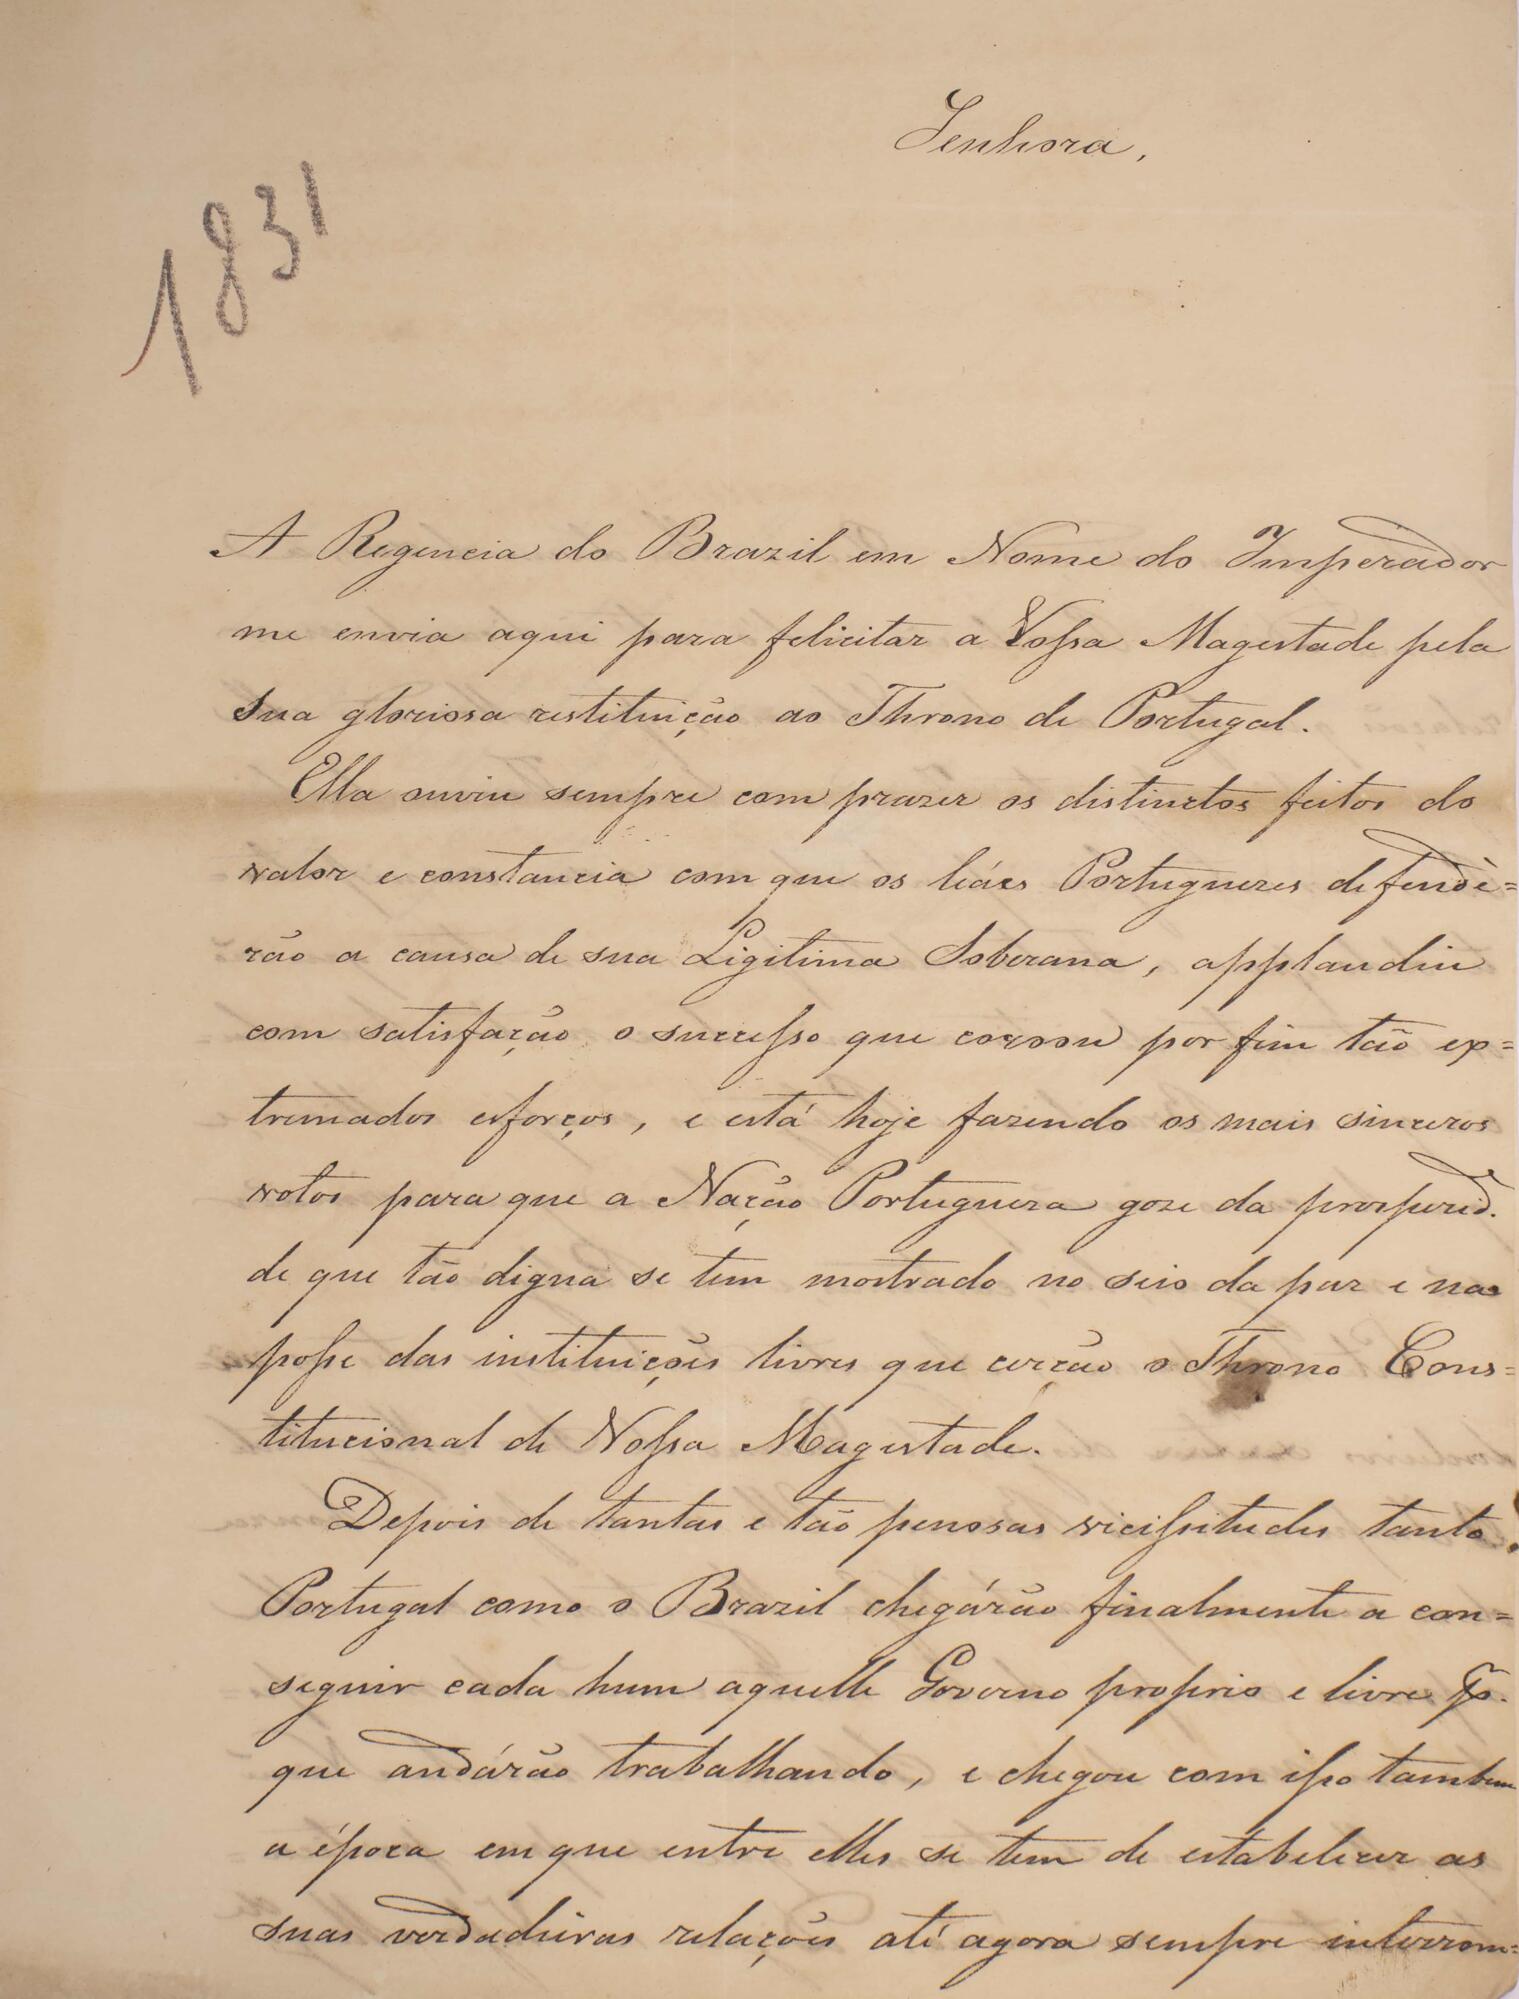 Senhora,
1831
A Regencia do Brazil em Nome do Imperador
me envia aqui para felicitar a Vossa Magestade pela
sua gloriosa restituição ao Throno de Portugal.
Ella ouviu sempre com prazer os distinctos feitos do
valor e constancia com que os leáes Portuguezes defendê=
rão a causa de sua Ligitima Soberana, applaudiu
com satisfação o sucesso que coroou por fim tão ex=
tremados esforços, e está hoje fazendo os mais sinceros
votos para que a Nação Portugueza goze da prosperid.
de que tão digna se tem mostrado no seio da paz e na
posse das instituições livres que cercão o Throno Cons=
titucional de Vossa Magestade.
Depois de tantas e tão penosas vicissitudes tanto
Portugal como o Brazil chegárão finalmente a con=
seguir cada hum aquelle Governo proprio e livre p.
que andárão trabalhando, e chegou com isso tambem
a época em que entre elles se tem de estabelecer as
suas verdadeiras relações até agora sempre interrom=